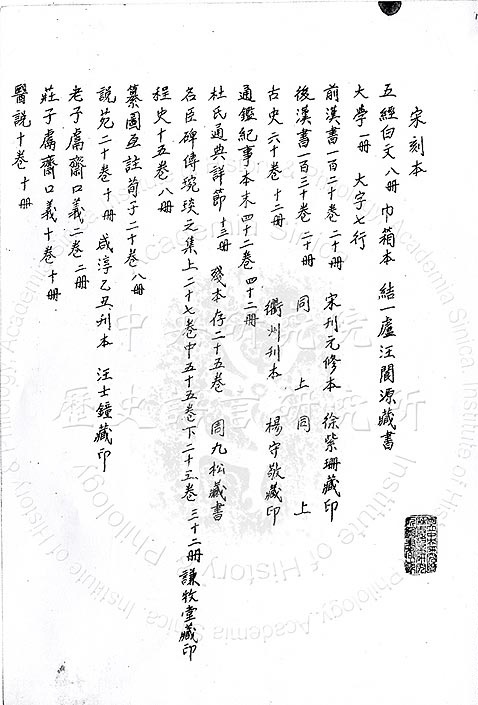 宋刻本
五經白文八冊 巾箱本 結一廬汪閬源藏書
大學一冊 大字七行
前漢書一百二十卷二十冊 宋刊元修本 徐紫珊藏印
後漢書一百三十卷二十冊 同上 同上
古史六十卷十二冊 衢州刊本 楊守敬藏印
通鑑紀事本末四十二卷四十二冊
杜氏通典詳節十三冊 殘本存二十五卷 周九松藏書
名臣碑傳琬琰之集上二十七卷中五十五卷下二十五卷三十二冊 謙牧堂藏印
程史十五卷八冊
纂圖互註荀子二十卷八冊
說苑二十卷十冊 咸淳乙丑刊本 汪士鐘藏印
老子鬳齋口義二卷二冊
莊子鬳齋口義十卷十冊
醫說十卷十冊
中央研究院
歷史語言研究所
Institute of History & Philology, Academia Sinica